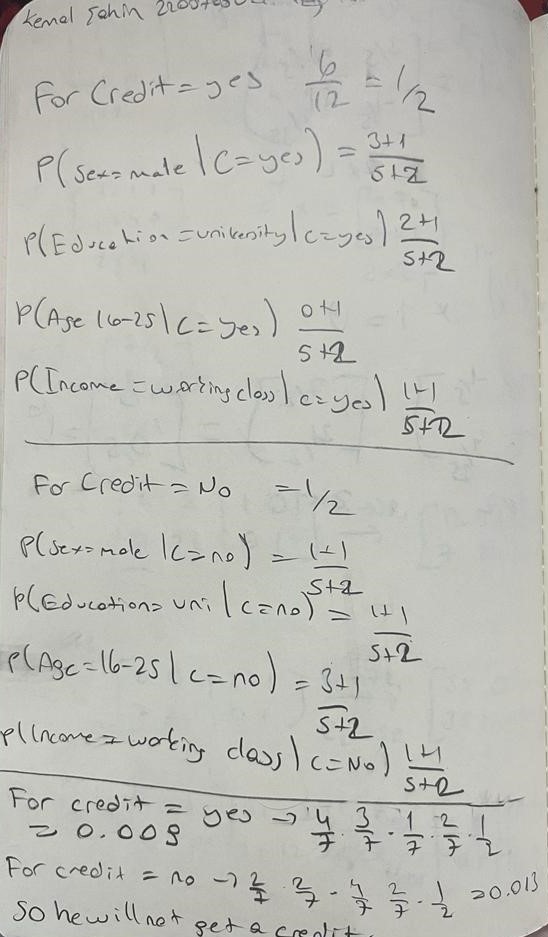 Kemal Şahin
For Credit = yes 6/12 = 1/2
P(Sex = male | C = yes) = 3+1/5+2
P(Education = university | C = yes) 2+1/5+2
P(Age 16-25 | C = yes) 0+1/5+2
P(Income = working class | C = yes) 1+1/5+2
For Credit = No = 1/2
P(Sex = male | C = no) = 1+1/5+2
P(Education = uni | C = no) = 1+1/5+2
P(Age = 16-25 | C = no) = 3+1/5+2
P(Income = working class | C = No) 1+1/5+2
For credit = yes → 4/7 · 3/7 · 1/7 · 2/7 · 1/2
= 0.005
For credit = no → 2/7 · 2/7 · 4/7 · 2/7 · 1/2 = 0.013
So he will not get a credit.